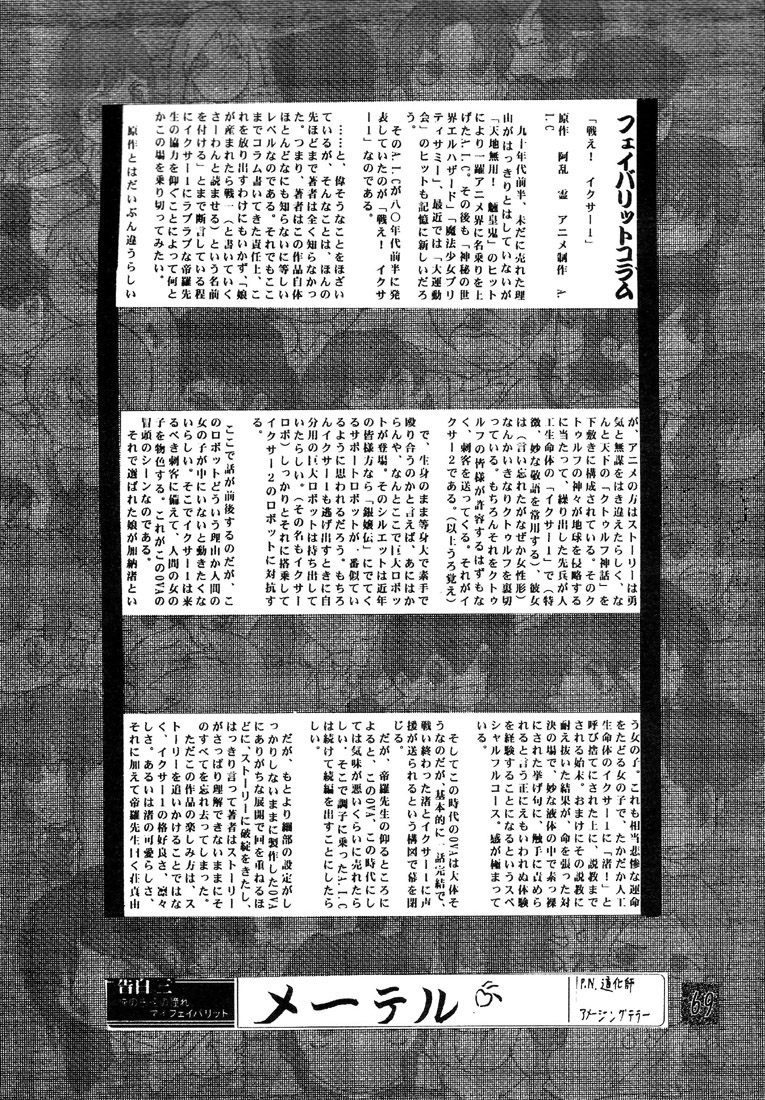 フェイバリットコラム
「戦え！　イクサー1」
原作　阿乱　霊　アニメ制作　A.
I.C
　九十年代前半、未だに売れた理
由がはっきりとはしていないが
「天地無用！　魎皇鬼」のヒット
により一躍アニメ界に名乗りを上
げたA.I.C。その後も「神秘の世
界エルハザード」「魔法少女プリ
ティサミー」、最近では「大運動
会」のヒットも記憶に新しいだろ
う。
　そのA.I.Cが八〇年代前半に発
表していたのが「戦え！　イクサ
ー1」なのである。
　……と、偉そうなことをほざい
ているが、そんなことは、ほんの
先ほどまで著者は全く知らなかっ
た。つまり、著者はこの作品自体
ほとんどなにも知らないに等しい
レベルなのである。それでもここ
までコラム書いてきた責任上、こ
れを放り出すわけにもいかず、「娘
が産まれたら戦一（と書いていく
さーわんと読ませる）という名前
を付ける」とまで断言している程
にイクサー1にラブラブな帝羅先
生の協力を仰ぐことによって何と
かこの場を乗り切ってみたい。
　原作とはだいぶん違うらしい
が、アニメの方はストーリーは勇
気と無謀をはき違えたらしく、な
んと天下の「クトゥルフ神話」を
下敷きに構成されている。そのク
トゥルフの神々が地球を侵略する
に当たって、繰り出した先兵が人
工生命体の「イクサー1」で（特
徴、妙な敬語を常用する）、彼女
は（言い忘れたがなぜか女性形）
なんかいきなりクトゥルフを裏切
っている。もちろんそれをクトゥ
ルフの皆様が許容するはずもな
く、刺客を送ってくる。それがイ
クサー2である。（以上うろ覚え）
　で、生身のまま等身大で素手で
殴り合うのかと言えば、あにはか
らんや、なんとここで巨大ロボッ
トが登場。そのシルエットは近年
の皆様方なら、「銀嬢伝」にでてく
るサポートロボットが一番似てい
るように思われるだろう。もちろ
んイクサー1も逃げ出すときに自
分用の巨大ロボットは持ち出して
いたらしい。（その名もイクサー
ロボ）しっかりとそれに搭乗して
イクサー2のロボットに対抗す
る。
　ここで話が前後するのだが、こ
のロボットどういう理由か人間の
女の子が中にいないと動きたくな
いらしい。そこでイクサー1は来
るべき刺客に備えて、人間の女の
子を物色する。これがこのOVAの
冒頭のシーンなのである。
　それで選ばれた娘が加納渚とい
う女の子。これも相当悲惨な運命
をたどる女の子で、たかだか人工
生命体のイクサー1に「渚！」と
呼び捨てにされた上に、説教まで
される始末。おまけにその説教に
耐え抜いた結果が、命を張った対
決の場で、妙な液体の中で素っ裸
にされた挙げ句に、触手に責めら
れると言う正にえもいわれぬ体験
を経験することになるというスペ
シャルフルコース。感が極まって
いる。
　そしてこの時代のOVAは大体そ
うなのだが、基本的に一話完結で、
戦い終わった渚とイクサー1に声
援が送られるという構図で幕を閉
じる。
　だが、帝羅先生の仰るところに
よると、このOVA、この時代にし
ては気味が悪いくらいに売れたら
しい。そこで調子に乗ったA.I.C
は続けて続編を出すことにしたら
しい。
　だが、もとより細部の設定がし
っかりしないままに製作したOVA
にありがちな展開で回を重ねるほ
どに、ストーリーに破綻をきたし、
はっきり言って著者はストーリー
がさっぱり理解できないままにそ
のすべてを忘れ去ってしまった。
　ただこの作品の楽しみ方は、ス
トーリーを追いかけることではな
く、イクサー1の格好良さ、凛々
しさ、あるいは渚の可愛らしさ、
それに加えて帝羅先生曰く荘真由
告白三
マイフェイバリット
メーテル
P.N.道化師
アメージングテラー
69